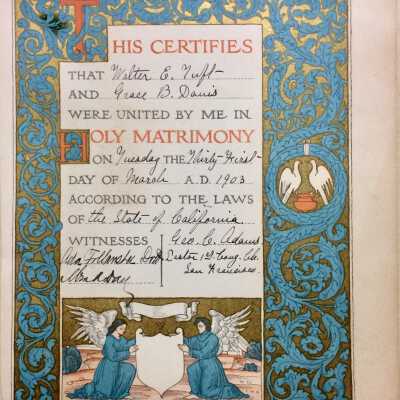 THIS CERTIFIES
THAT Walter E. Tuft
AND Grace B. Davis
WERE UNITED BY ME IN
HOLY MATRIMONY
ON Tuesday THE Thirty-First
DAY OF March A.D. 1903
ACCORDING TO THE LAWS
OF the State of California
WITNESSES Geo. C. Adams
Pastor 1st Cong. Ch.
San Francisco.